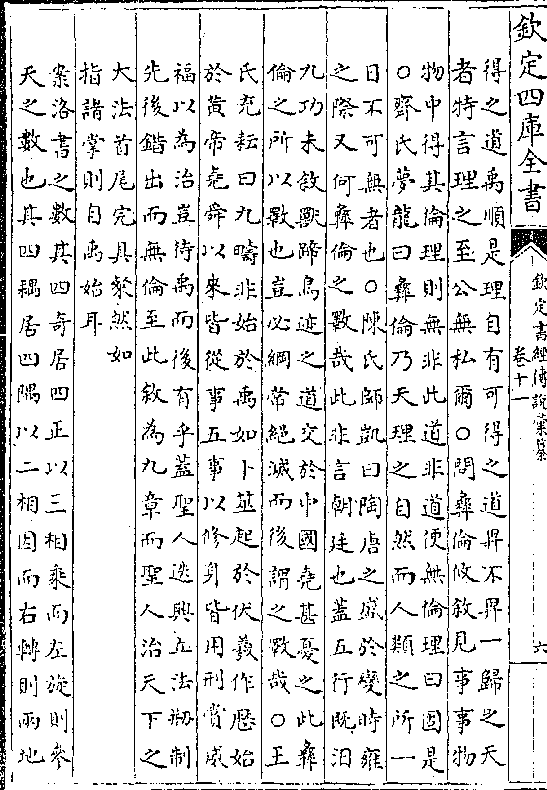 欽定四庫全書
欽定書經傳說彙纂
卷十一
六
得之道禹順是理自有可得之道畀不畀一歸之天
者特言理之至公無私爾○問彝倫攸敘見事事物
物中得其倫理則無非此道非道便無倫理曰固是
○齊氏夢龍曰彝倫乃天理之自然而人類之所一
日不可無者也○陳氏師凱曰陶唐之盛於變時雍
之際又何彝倫之斁哉此非言朝廷也蓋五行既汨
九功未敘獸蹄鳥迹之道交於中國堯甚憂之此彝
倫之所以斁也豈必綱常絕滅而後謂之斁哉○王
氏充耘曰九疇非始於禹如卜筮起於伏羲作厯始
於黃帝堯舜以來皆從事五事以修身皆用刑賞威
福以為治豈待禹而後有乎蓋聖人迭興立法剏制
先後錯出而無倫至此敘為九章而聖人治天下之
大法首尾完具粲然如
指諸掌則自禹始耳
案洛書之數其四奇居四正以三相乘而左旋則參
天之數也其四耦居四隅以二相因而右轉則兩地